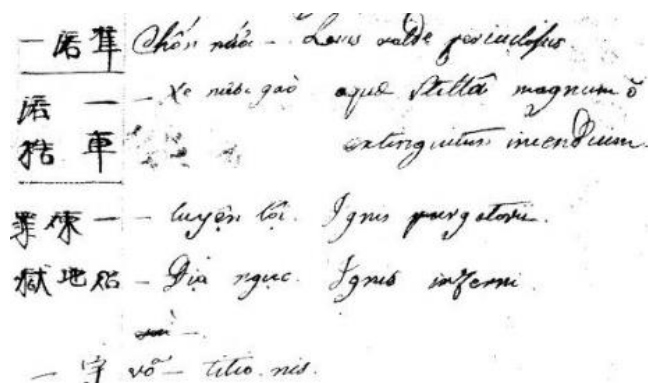 一渃準 Chốn nước – Locus valde periculosus
渃 一 – Xe nước gáo aquæ stillâ magnum õ
車 extinguitur incendium.
煉一 – luyện tội. Ignis purgatorii.
獄地 – Địa ngục. Ignis inferni.
一 字 vỗ – titio. nis.